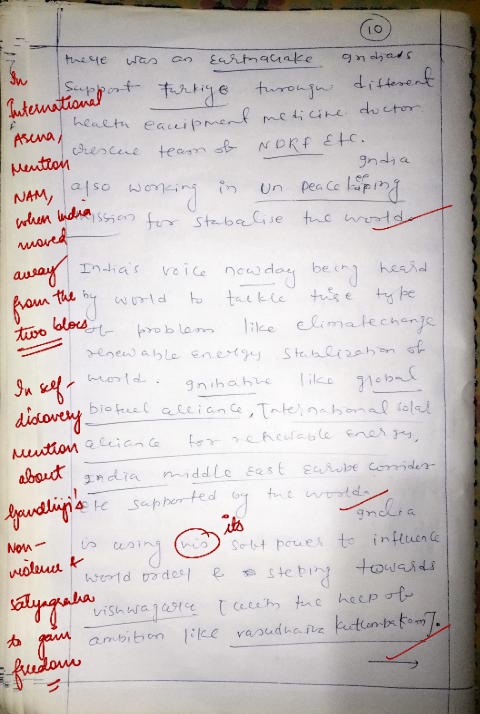 10
there was an Earthquake India's
Support Turkiye through different
health equipment medicine doctor
rescue team of NDRF Etc.
India
also working in UN Peace keeping
mission for stabalise the world.
India's voice nowday being heard
by world to tackle these type
of problem like climatechange
renewable energy stabilization of
world. Initiative like global
biofuel alliance, International solar
alliance for renewable energy,
India middle East Europe corridor
etc supported by the world.
India
is using his soft power to influence
world order & steping towards
vishwaguru with the help of
ambition like vasudhaiva kutumbakam.
In
International
Arena,
Mention
NAM,
when India
moved
away
from the
two blocs
In self-
discovery
mention
about
Gandhiji's
non-
violence &
Satyagraha
to gain
freedom
its